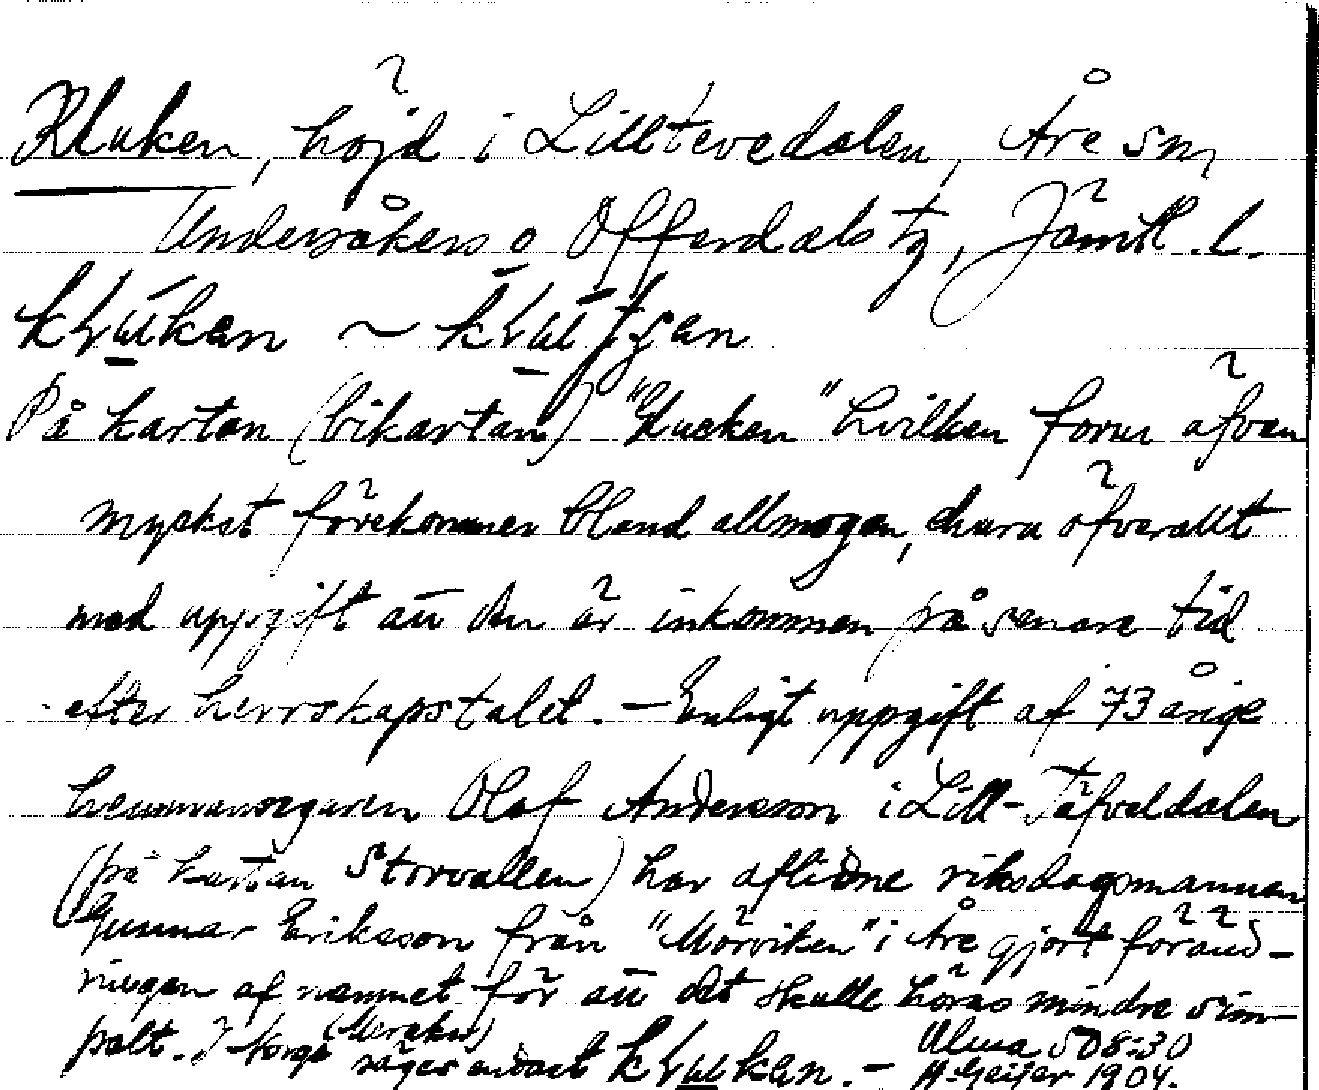 Kluken, höjd i Lilltevedalen, Åre sn,
Undersåkers o Offerdals tg, Jämtl. l.
På kartan (bikartan) "Klucken" hvilken form äfven
mycket förekommer bland allmogen, ehuru öfverallt
med uppgift att den är inkommen på senare tid
efter herrskapstalet. – Enligt uppgift af 73 årige
hemmansegaren Olof Andersson i Lill-Täfveldalen
(på kartan Storvallen) har aflidne riksdagsmannen
Gunnar Eriksson från "Mörviken" i Åre gjort föränd-
ringen af namnet för att det skulle höras mindre sim-
pelt. I Norge (Meraker) säges endast
H. Geijer 1904.